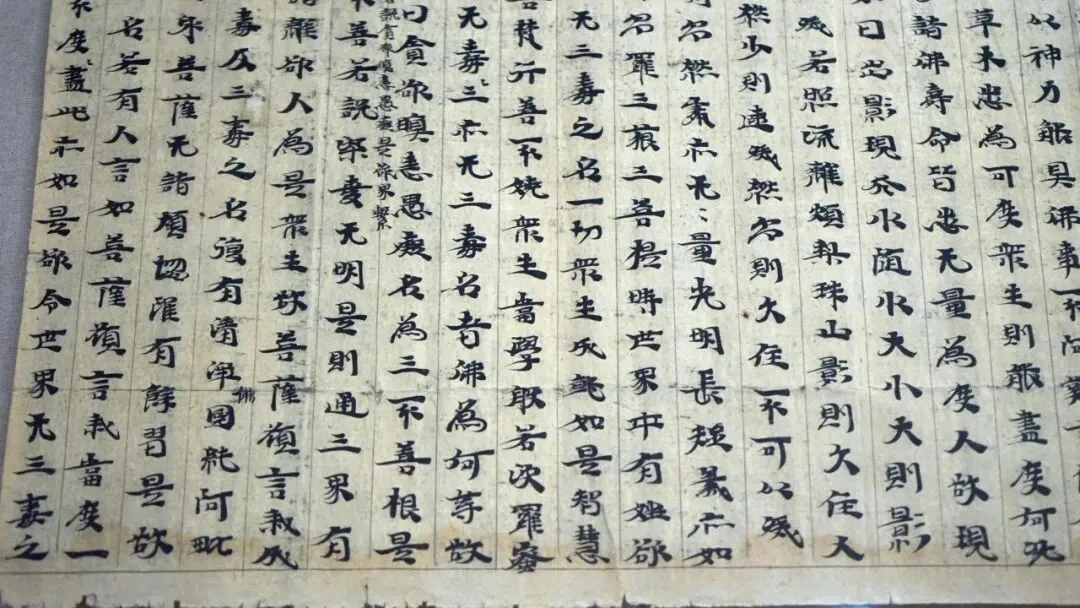 以神力能具佛事
草木悉為可度衆生則能盡度何况
諸佛壽命皆悉无量為度人故現
如日出影現於水随水大小大則影
滅若照流離頗梨珠山影則久住火
燃少則速滅燃多則久住不可以滅
多燃 亦无量光明長短義亦如
多羅三藐三菩提時世界中有婬欲
无三毒之名一切衆生成就如是智慧
善梵行善不嬈衆生當學般若波羅蜜
无毒三亦无三毒名者佛為何等故
曰貪欲瞋恚愚癡名為三不善根是
瞋恚愚癡是欲界繫
不善若說染愛无明是則通三界有
離欲人為是衆生故菩薩願言我成
毒及三毒之名復有清淨佛國純阿毗
菩薩无諸煩惱唯有餘習是故
名若有人言如菩薩願言我當度一
度盡此亦如是欲令世界无三毒之